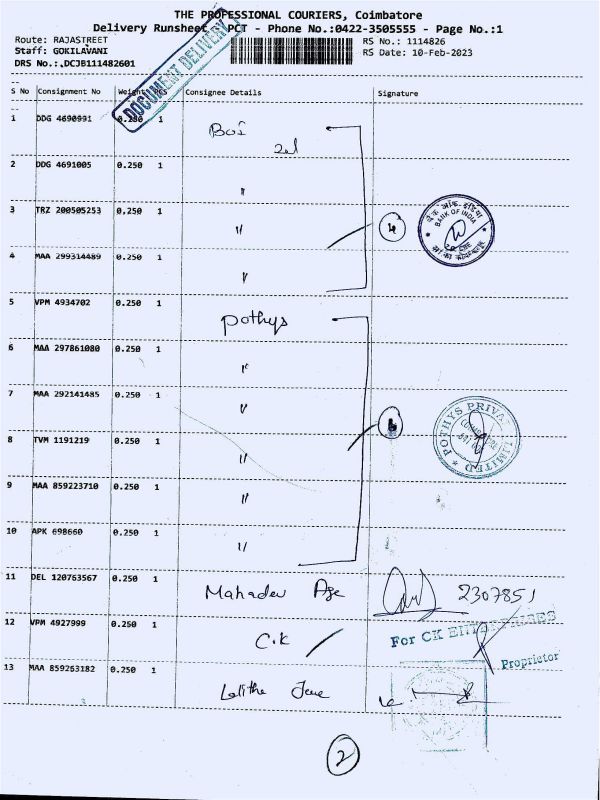 THE PROFESSIONAL COURIERS, Coimbatore
Delivery Runsheet PCT - Phone No.:0422-3505555 - Page No.:1
Route: RAJASTREET
Staff: GOKILAVANI
DRS No.:,DCJB111482601
RS No.: 1114826
RS Date: 10-Feb-2023
DOCUMENT DELIVERY
S No Consignment No Weight PCS Consignee Details Signature
1 DDG 4690991 0.250 1 BOI
2 DDG 4691005 0.250 1 "
3 TRZ 200505253 0.250 1 "
4 MAA 299314489 0.250 1 "
4
बैंक ऑफ इंडिया
BANK OF INDIA
5 VPM 4934702 0.250 1 Pothys
6 MAA 297861080 0.250 1 "
7 MAA 292141485 0.250 1 "
8 TVM 1191219 0.250 1 "
9 MAA 859223710 0.250 1 "
10 APK 698660 0.250 1 "
6
POTHYS PRIVATE LIMITED
11 DEL 120763567 0.250 1 Mahadev Age 2307851
12 VPM 4927999 0.250 1 C.K
For CK ENTERPRISES
Proprietor
13 MAA 859263182 0.250 1 Lalitha
2